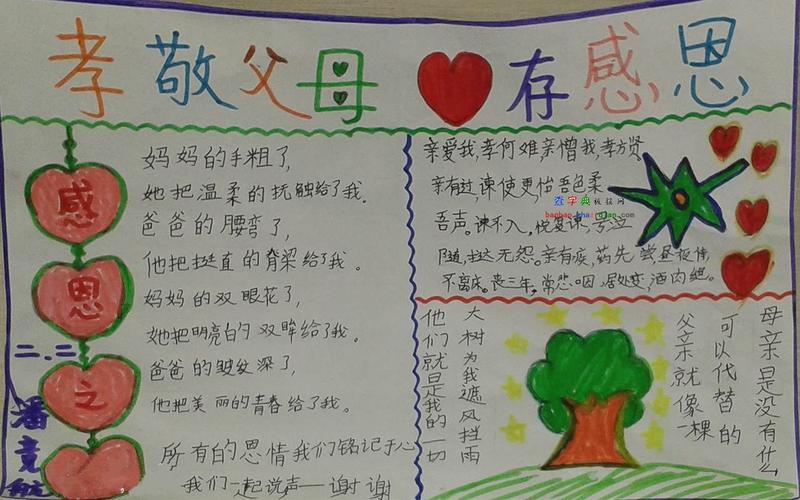 孝敬父母 存感恩
感
恩
之
二.二
潘竞
妈妈的手粗了,
她把温柔的抚触给了我。
爸爸的腰弯了,
他把挺直的脊梁给了我。
妈妈的双眼花了,
她把明亮的双眸给了我。
爸爸的皱纹深了,
他把美丽的青春给了我。
所有的恩情我们铭记于心
我们一起说声一谢谢
亲爱我,孝何难,亲憎我,孝方贤
亲有过,谏使更,怡吾色,柔
吾声。谏不入,悦复谏,号泣
随,挞无怨。亲有疾,药先尝,昼
不离床。丧三年,常悲咽,居处变,酒肉绝。
查字典板报网
banbao.chazidian.com
母亲是没有什么
可以代替的
父亲就像一棵
大树为我遮风挡雨
他们就是我的一切